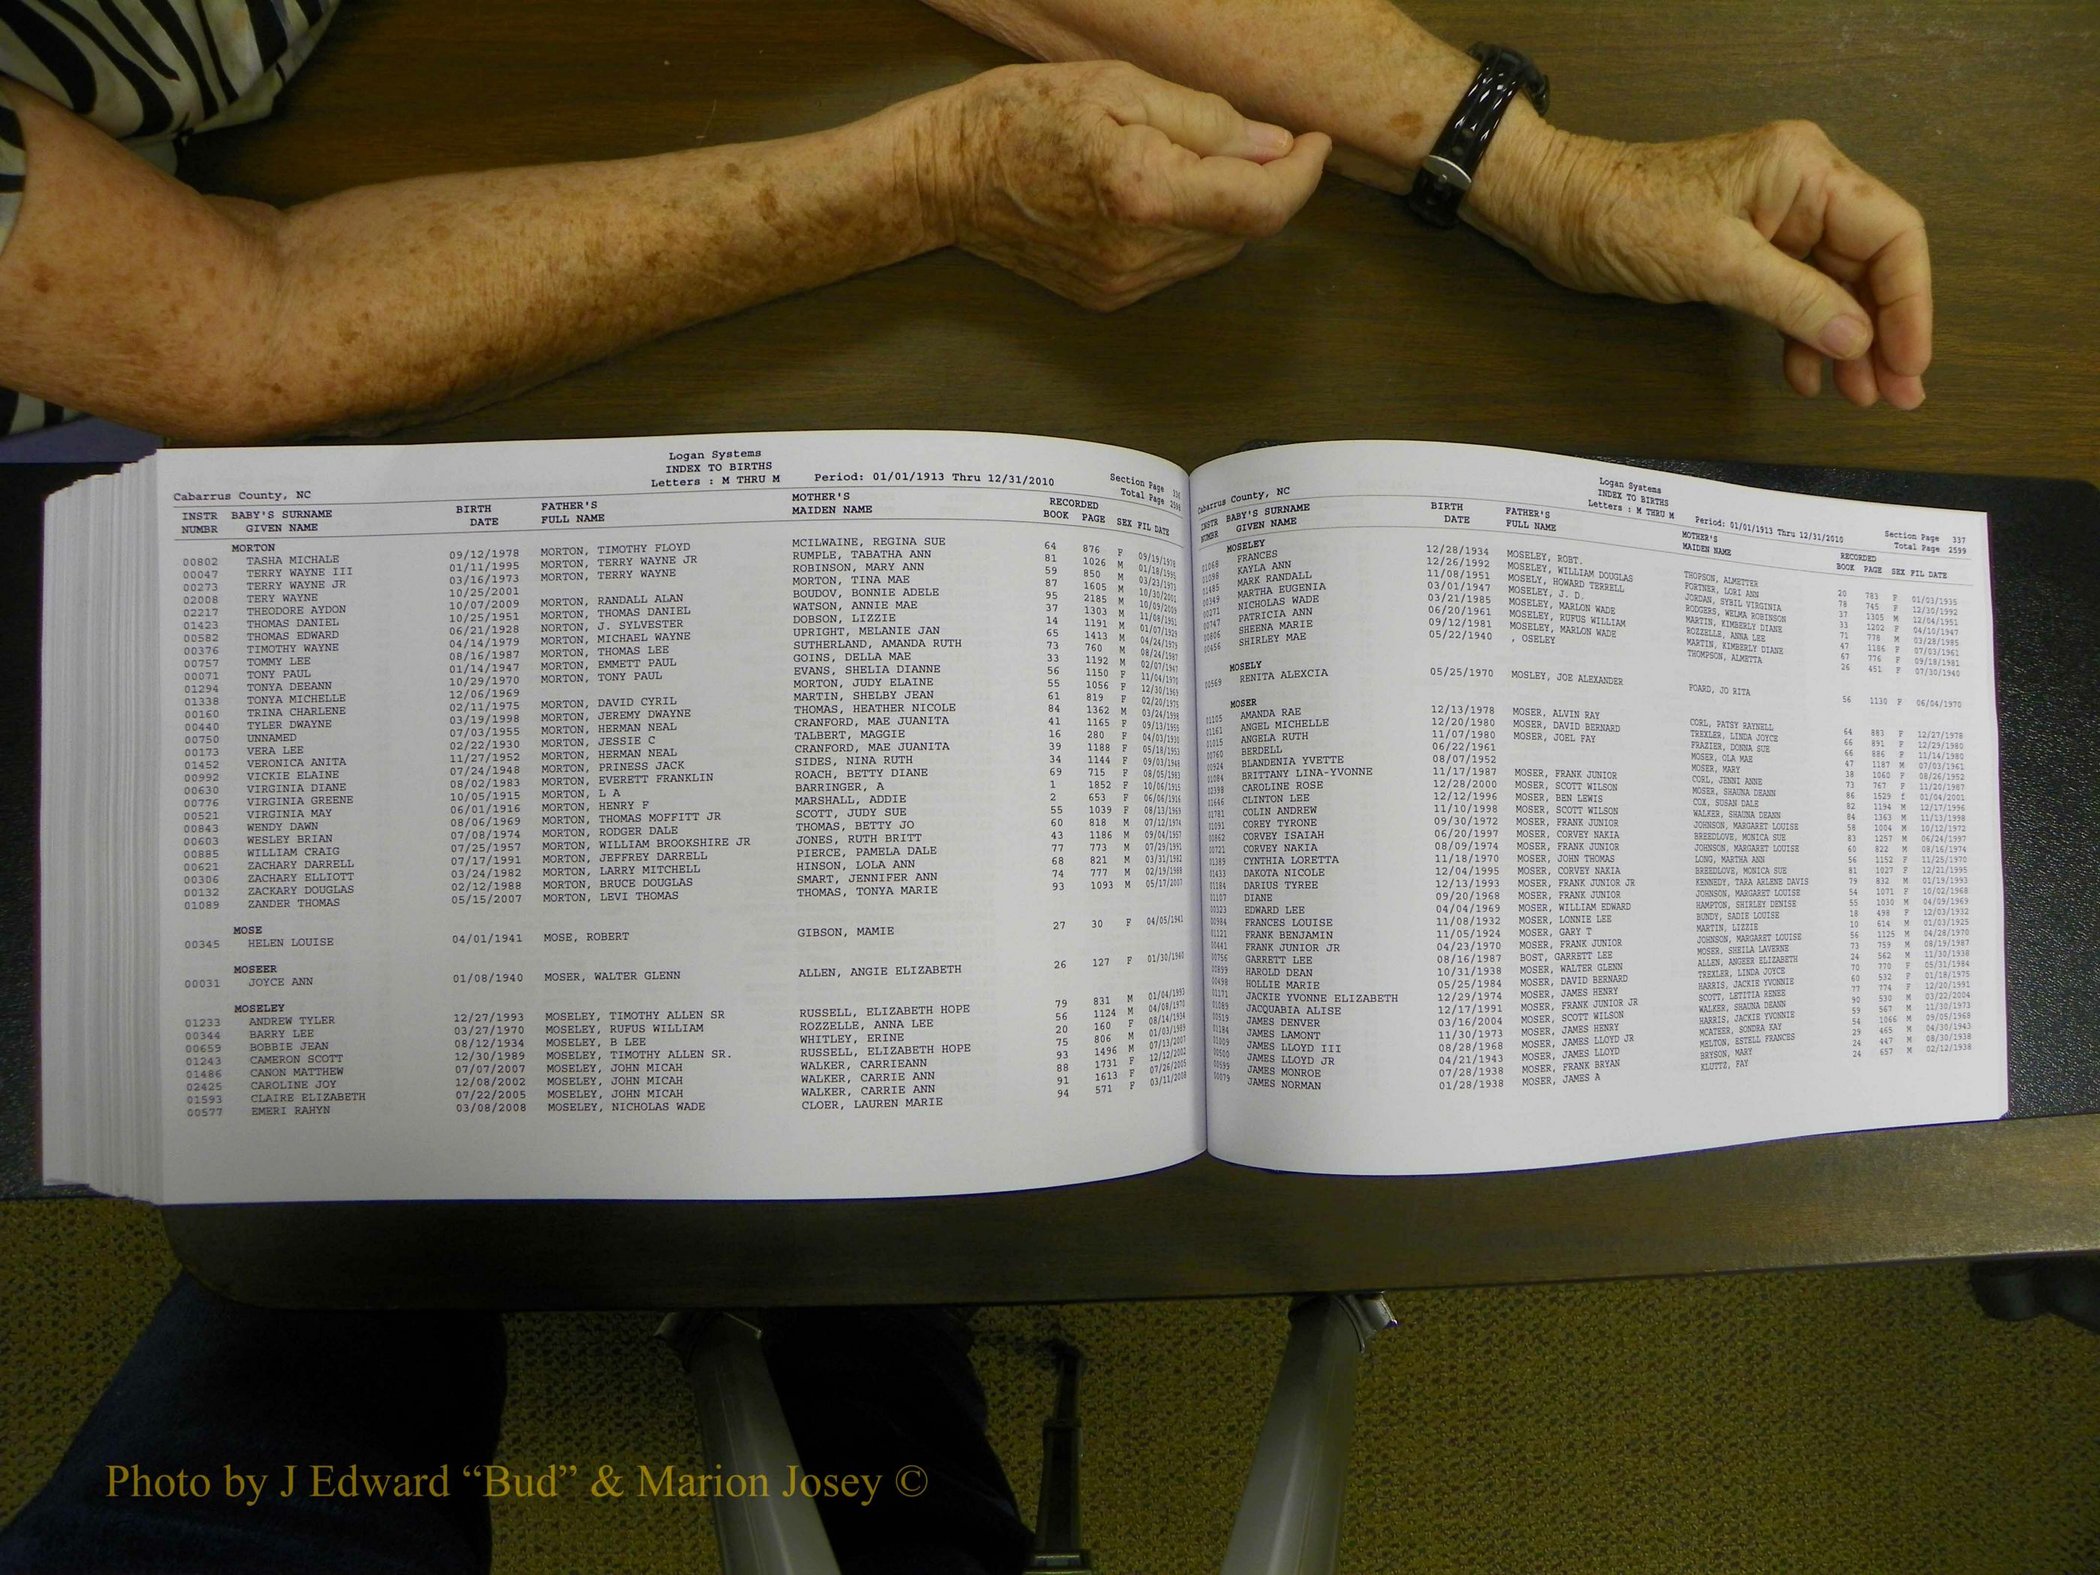 Logan Systems
INDEX TO BIRTHS
Cabarrus County, NC Letters : M THRU M Period: 01/01/1913 Thru 12/31/2010 Section Page 336
Total Page 2598
INSTR BABY'S SURNAME BIRTH FATHER'S MOTHER'S RECORDED
NUMBR GIVEN NAME DATE FULL NAME MAIDEN NAME BOOK PAGE SEX FIL DATE
MORTON
00802 TASHA MICHALE 09/12/1978 MORTON, TIMOTHY FLOYD MCILWAINE, REGINA SUE 64 876 F 09/19/1978
00047 TERRY WAYNE III 01/11/1995 MORTON, TERRY WAYNE JR RUMPLE, TABATHA ANN 81 1026 M 01/18/1995
00273 TERRY WAYNE JR 03/16/1973 MORTON, TERRY WAYNE ROBINSON, MARY ANN 59 850 M 03/23/1973
02008 TERY WAYNE 10/25/2001 MORTON, TINA MAE 87 1605 M 10/30/2001
02217 THEODORE AYDON 10/07/2009 MORTON, RANDALL ALAN BOUDOV, BONNIE ADELE 95 2185 M 10/09/2009
01423 THOMAS DANIEL 10/25/1951 MORTON, THOMAS DANIEL WATSON, ANNIE MAE 37 1303 M 11/08/1951
00582 THOMAS EDWARD 06/21/1928 NORTON, J. SYLVESTER DOBSON, LIZZIE 14 1191 M 01/07/1929
00376 TIMOTHY WAYNE 04/14/1979 MORTON, MICHAEL WAYNE UPRIGHT, MELANIE JAN 65 1413 M 04/24/1979
00757 TOMMY LEE 08/16/1987 MORTON, THOMAS LEE SUTHERLAND, AMANDA RUTH 73 760 M 08/24/1987
00071 TONY PAUL 01/14/1947 MORTON, EMMETT PAUL GOINS, DELLA MAE 33 1192 M 02/07/1947
01294 TONYA DEEANN 10/29/1970 MORTON, TONY PAUL EVANS, SHELIA DIANNE 56 1150 F 11/04/1970
01338 TONYA MICHELLE 12/06/1969 MORTON, JUDY ELAINE 55 1056 F 12/30/1969
00160 TRINA CHARLENE 02/11/1975 MORTON, DAVID CYRIL MARTIN, SHELBY JEAN 61 819 F 02/20/1975
00440 TYLER DWAYNE 03/19/1998 MORTON, JEREMY DWAYNE THOMAS, HEATHER NICOLE 84 1362 M 03/24/1998
00750 UNNAMED 07/03/1955 MORTON, HERMAN NEAL CRANFORD, MAE JUANITA 41 1165 F 09/13/1955
00173 VERA LEE 02/22/1930 MORTON, JESSIE C TALBERT, MAGGIE 16 280 F 04/03/1930
01452 VERONICA ANITA 11/27/1952 MORTON, HERMAN NEAL CRANFORD, MAE JUANITA 39 1188 F 05/18/1953
00992 VICKIE ELAINE 07/24/1948 MORTON, PRINESS JACK SIDES, NINA RUTH 34 1144 F 09/03/1948
00630 VIRGINIA DIANE 08/02/1983 MORTON, EVERETT FRANKLIN ROACH, BETTY DIANE 69 715 F 08/05/1983
00776 VIRGINIA GREENE 10/05/1915 MORTON, L A BARRINGER, A 1 1852 F 10/06/1915
00521 VIRGINIA MAY 06/01/1916 MORTON, HENRY F MARSHALL, ADDIE 2 653 F 06/06/1916
00843 WENDY DAWN 08/06/1969 MORTON, THOMAS MOFFITT JR SCOTT, JUDY SUE 55 1039 F 08/13/1969
00603 WESLEY BRIAN 07/08/1974 MORTON, RODGER DALE THOMAS, BETTY JO 60 818 M 07/12/1974
00885 WILLIAM CRAIG 07/25/1957 MORTON, WILLIAM BROOKSHIRE JR JONES, RUTH BRITT 43 1186 M 09/04/1957
00621 ZACHARY DARRELL 07/17/1991 MORTON, JEFFREY DARRELL PIERCE, PAMELA DALE 77 773 M 07/29/1991
00306 ZACHARY ELLIOTT 03/24/1982 MORTON, LARRY MITCHELL HINSON, LOLA ANN 68 821 M 03/31/1982
00132 ZACKARY DOUGLAS 02/12/1988 MORTON, BRUCE DOUGLAS SMART, JENNIFER ANN 74 777 M 02/19/1988
01089 ZANDER THOMAS 05/15/2007 MORTON, LEVI THOMAS THOMAS, TONYA MARIE 93 1093 M 05/17/2007
MOSE
00345 HELEN LOUISE 04/01/1941 MOSE, ROBERT GIBSON, MAMIE 27 30 F 04/05/1941
MOSEER
00031 JOYCE ANN 01/08/1940 MOSER, WALTER GLENN ALLEN, ANGIE ELIZABETH 26 127 F 01/30/1940
MOSELEY
01233 ANDREW TYLER 12/27/1993 MOSELEY, TIMOTHY ALLEN SR RUSSELL, ELIZABETH HOPE 79 831 M 01/04/1993
00344 BARRY LEE 03/27/1970 MOSELEY, RUFUS WILLIAM ROZZELLE, ANNA LEE 56 1124 M 04/08/1970
00659 BOBBIE JEAN 08/12/1934 MOSELEY, B LEE WHITLEY, ERINE 20 160 F 08/14/1934
01243 CAMERON SCOTT 12/30/1989 MOSELEY, TIMOTHY ALLEN SR. RUSSELL, ELIZABETH HOPE 75 806 M 01/03/1989
01486 CANON MATTHEW 07/07/2007 MOSELEY, JOHN MICAH WALKER, CARRIEANN 93 1496 M 07/13/2007
02425 CAROLINE JOY 12/08/2002 MOSELEY, JOHN MICAH WALKER, CARRIE ANN 88 1731 F 12/12/2002
01593 CLAIRE ELIZABETH 07/22/2005 MOSELEY, JOHN MICAH WALKER, CARRIE ANN 91 1613 F 07/26/2005
00577 EMERI RAHYN 03/08/2008 MOSELEY, NICHOLAS WADE CLOER, LAUREN MARIE 94 571 F 03/11/2008
Logan Systems
INDEX TO BIRTHS
Cabarrus County, NC Letters : M THRU M Period: 01/01/1913 Thru 12/31/2010 Section Page 337
Total Page 2599
INSTR BABY'S SURNAME BIRTH FATHER'S MOTHER'S RECORDED
NUMBR GIVEN NAME DATE FULL NAME MAIDEN NAME BOOK PAGE SEX FIL DATE
MOSELEY
01068 FRANCES 12/28/1934 MOSELEY, ROBT. THOPSON, ALMETTER 20 783 F 01/03/1935
01098 KAYLA ANN 12/26/1992 MOSELEY, WILLIAM DOUGLAS FORTNER, LORI ANN 78 745 F 12/30/1992
01485 MARK RANDALL 11/08/1951 MOSELY, HOWARD TERRELL JORDAN, SYBIL VIRGINIA 37 1305 M 12/04/1951
00349 MARTHA EUGENIA 03/01/1947 MOSELEY, J. D. RODGERS, WELMA ROBINSON 33 1202 F 04/10/1947
00271 NICHOLAS WADE 03/21/1985 MOSELEY, MARLON WADE MARTIN, KIMBERLY DIANE 71 778 M 03/28/1985
00747 PATRICIA ANN 06/20/1961 MOSELEY, RUFUS WILLIAM ROZZELLE, ANNA LEE 47 1186 F 07/03/1961
00806 SHEENA MARIE 09/12/1981 MOSELEY, MARLON WADE MARTIN, KIMBERLY DIANE 67 776 F 09/18/1981
00456 SHIRLEY MAE 05/22/1940 , OSELEY THOMPSON, ALMETTA 26 451 F 07/30/1940
MOSELY
00569 RENITA ALEXCIA 05/25/1970 MOSLEY, JOE ALEXANDER FOARD, JO RITA 56 1130 F 06/04/1970
MOSER
01105 AMANDA RAE 12/13/1978 MOSER, ALVIN RAY CORL, PATSY RAYNELL 64 883 F 12/27/1978
01161 ANGEL MICHELLE 12/20/1980 MOSER, DAVID BERNARD TREXLER, LINDA JOYCE 66 891 F 12/29/1980
01015 ANGELA RUTH 11/07/1980 MOSER, JOEL FAY FRAZIER, DONNA SUE 66 886 F 11/14/1980
00760 BERDELL 06/22/1961 MOSER, OLA MAE 47 1187 M 07/03/1961
00924 BLANDENIA YVETTE 08/07/1952 MOSER, MARY 38 1060 F 08/26/1952
01084 BRITTANY LINA-YVONNE 11/17/1987 MOSER, FRANK JUNIOR CORL, JENNI ANNE 73 767 F 11/20/1987
02398 CAROLINE ROSE 12/28/2000 MOSER, SCOTT WILSON MOSER, SHAUNA DEANN 86 1529 f 01/04/2001
01666 CLINTON LEE 12/12/1996 MOSER, BEN LEWIS COX, SUSAN DALE 82 1194 M 12/17/1996
01781 COLIN ANDREW 11/10/1998 MOSER, SCOTT WILSON WALKER, SHAUNA DEANN 84 1363 M 11/13/1998
01091 COREY TYRONE 09/30/1972 MOSER, FRANK JUNIOR JOHNSON, MARGARET LOUISE 58 1004 M 10/12/1972
00862 CORVEY ISAIAH 06/20/1997 MOSER, CORVEY NAKIA BREEDLOVE, MONICA SUE 83 1257 M 06/24/1997
00721 CORVEY NAKIA 08/09/1974 MOSER, FRANK JUNIOR JOHNSON, MARGARET LOUISE 60 822 M 08/16/1974
01389 CYNTHIA LORETTA 11/18/1970 MOSER, JOHN THOMAS LONG, MARTHA ANN 56 1152 F 11/25/1970
01433 DAKOTA NICOLE 12/04/1995 MOSER, CORVEY NAKIA BREEDLOVE, MONICA SUE 81 1027 F 12/21/1995
01184 DARIUS TYREE 12/13/1993 MOSER, FRANK JUNIOR JR KENNEDY, TARA ARLENE DAVIS 79 832 M 01/19/1993
01107 DIANE 09/20/1968 MOSER, FRANK JUNIOR JOHNSON, MARGARET LOUISE 54 1071 F 10/02/1968
00323 EDWARD LEE 04/04/1969 MOSER, WILLIAM EDWARD HAMPTON, SHIRLEY DENISE 55 1030 M 04/09/1969
00984 FRANCES LOUISE 11/08/1932 MOSER, LONNIE LEE BUNDY, SADIE LOUISE 18 498 F 12/03/1932
01121 FRANK BENJAMIN 11/05/1924 MOSER, GARY T MARTIN, LIZZIE 10 614 M 01/03/1925
00441 FRANK JUNIOR JR 04/23/1970 MOSER, FRANK JUNIOR JOHNSON, MARGARET LOUISE 56 1125 M 04/28/1970
00756 GARRETT LEE 08/16/1987 BOST, GARRETT LEE MOSER, SHEILA LAVERNE 73 759 M 08/19/1987
00899 HAROLD DEAN 10/31/1938 MOSER, WALTER GLENN ALLEN, ANGEER ELIZABETH 24 562 M 11/30/1938
00498 HOLLIE MARIE 05/25/1984 MOSER, DAVID BERNARD TREXLER, LINDA JOYCE 70 770 F 05/31/1984
01171 JACKIE YVONNE ELIZABETH 12/29/1974 MOSER, JAMES HENRY HARRIS, JACKIE YVONNIE 60 532 F 01/18/1975
01089 JACQUABIA ALISE 12/17/1991 MOSER, FRANK JUNIOR JR SCOTT, LETITIA RENEE 77 774 F 12/20/1991
00519 JAMES DENVER 03/16/2004 MOSER, SCOTT WILSON WALKER, SHAUNA DEANN 90 530 M 03/22/2004
01184 JAMES LAMONT 11/30/1973 MOSER, JAMES HENRY HARRIS, JACKIE YVONNIE 59 567 M 11/30/1973
01009 JAMES LLOYD III 08/28/1968 MOSER, JAMES LLOYD JR MCATEER, SONDRA KAY 54 1066 M 09/05/1968
00500 JAMES LLOYD JR 04/21/1943 MOSER, JAMES LLOYD MELTON, ESTELL FRANCES 29 465 M 04/30/1943
00599 JAMES MONROE 07/28/1938 MOSER, FRANK BRYAN BRYSON, MARY 24 447 M 08/30/1938
00079 JAMES NORMAN 01/28/1938 MOSER, JAMES A KLUTTZ, FAY 24 657 M 02/12/1938
Photo by J Edward “Bud” & Marion Josey ©